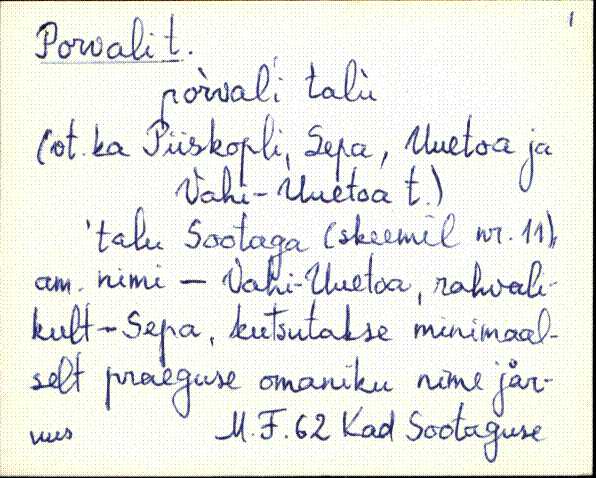 1
Porvali t.
pòrvali talù
(vt. ka Piiskopli, Sepa, Uuetoa ja
Vahi-Uuetoa t.)
talu Sootaga (skeemil nr. 11),
am. nimi – Vahi-Uuetoa, rahvali-
kult – Sepa, kutsutakse minimaal-
selt praeguse omaniku nime jär-
M.F. 62 Kad Sootaguse